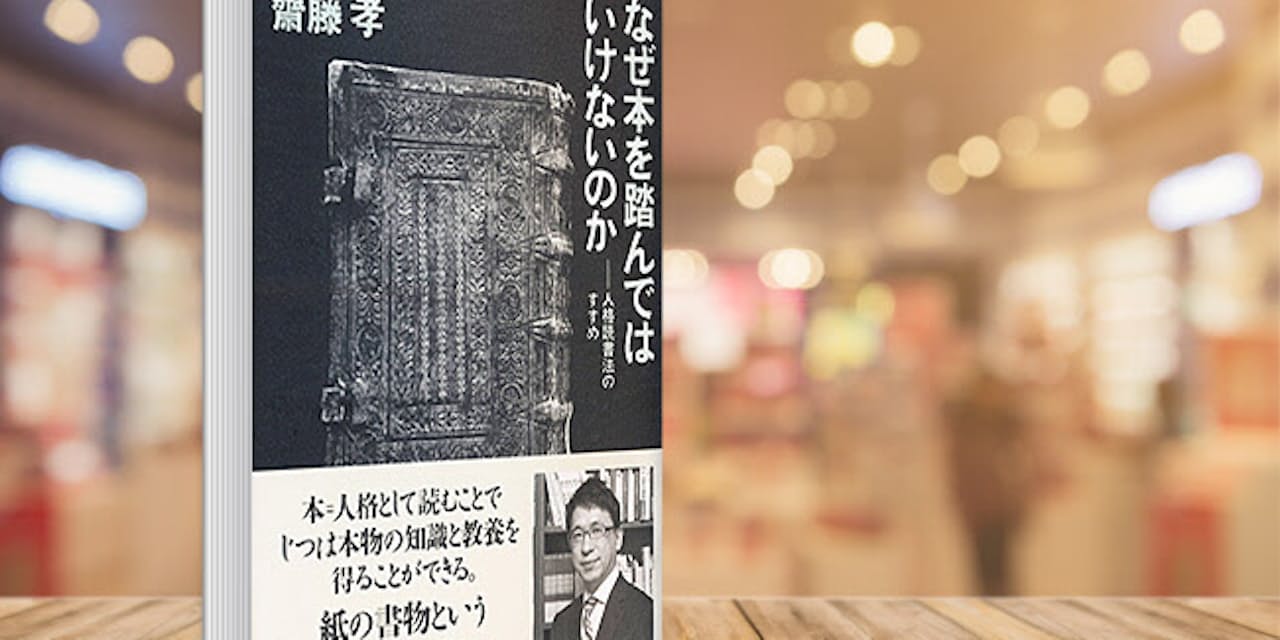 齋藤 孝
なぜ本を踏んでは
いけないのか
──人格読書法の
すすめ
本=人格として読むことで
じつは本物の知識と教養を
得ることができる。
紙の書物という